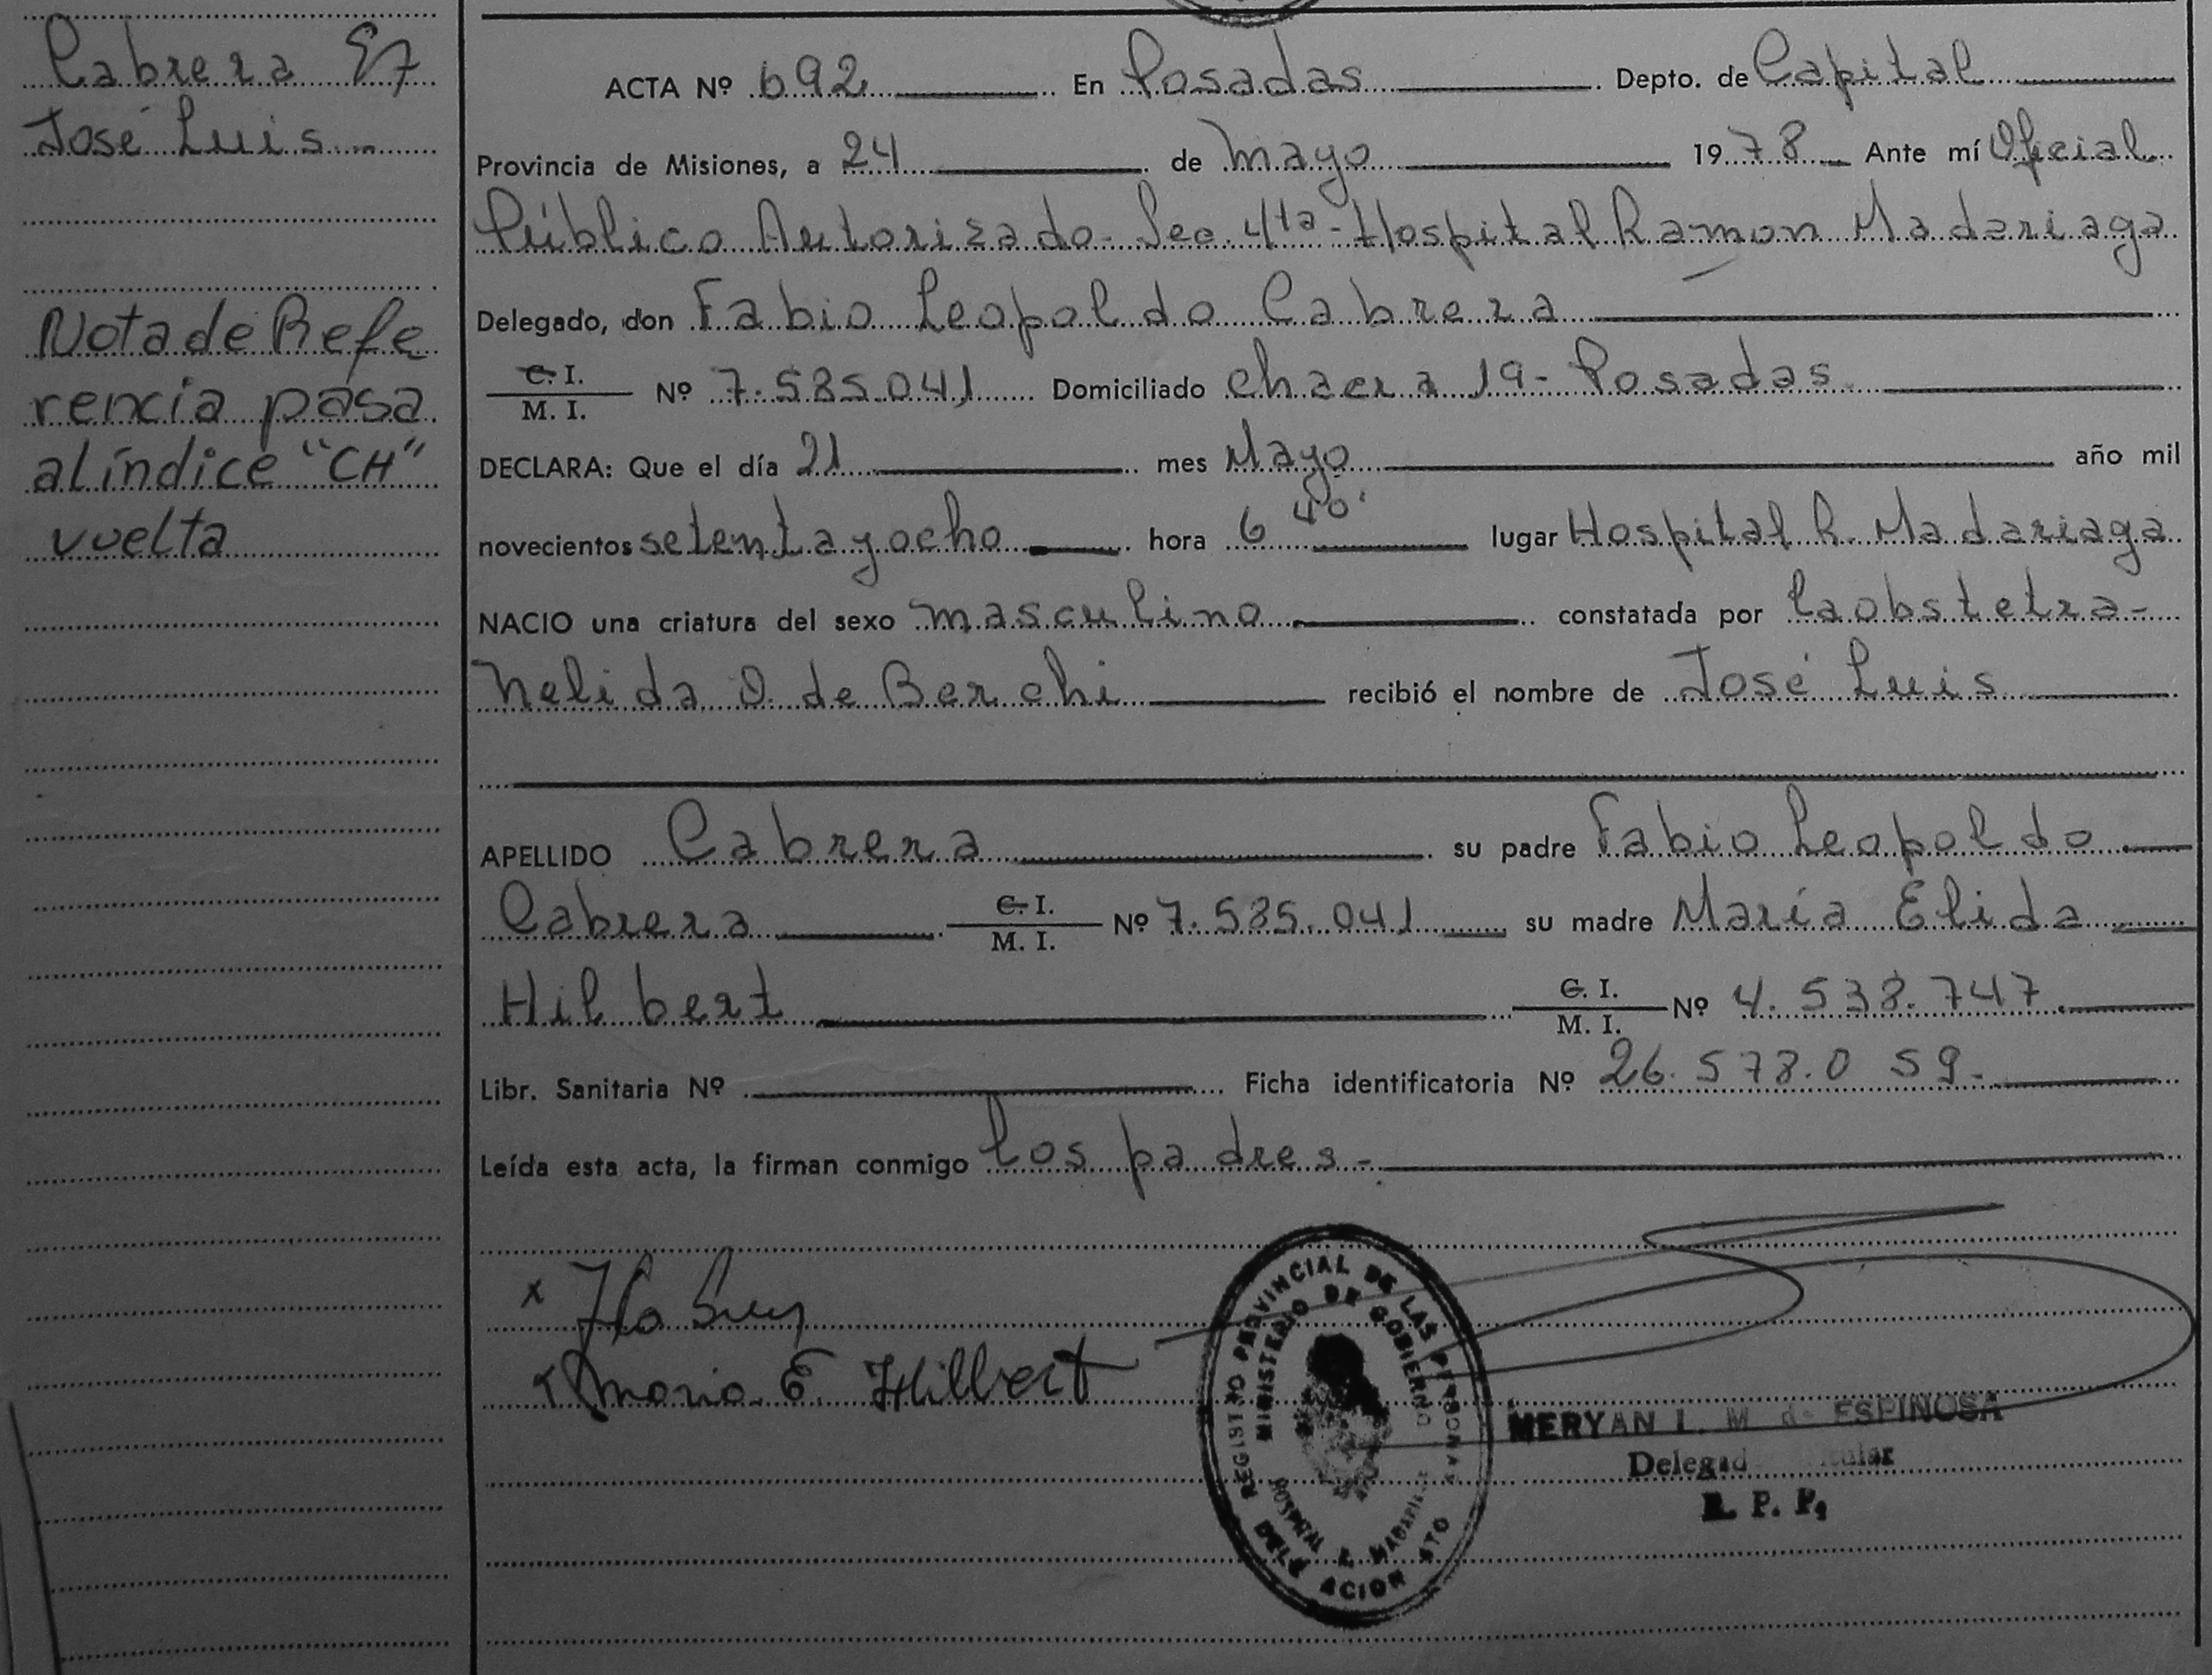 Cabrera
José Luis
Nota de Refe
rencia pasa
al índice "CH"
vuelta
ACTA Nº 692 En Posadas Depto. de Capital
Provincia de Misiones, a 24 de mayo 1978 Ante mí Oficial
Público Autorizado- Sec. 4ta- Hospital Ramon Madariaga
Delegado, don Fabio Leopoldo Cabrera
C. I.
M. I. Nº 7.585.041 Domiciliado chacra 19- Posadas
DECLARA: Que el día 21 mes Mayo año mil
novecientos setenta y ocho hora 6 40' lugar Hospital R. Madariaga
NACIO una criatura del sexo masculino constatada por la obstetra-
Nelida O. de Berchi recibió el nombre de José Luis
APELLIDO Cabrera su padre Fabio Leopoldo
Cabrera C. I.
M. I. Nº 7.585.041 su madre María Elida
Hilbert C. I.
M. I. Nº 4.538.747
Libr. Sanitaria Nº Ficha identificatoria Nº 26.578.059-
Leída esta acta, la firman conmigo los padres-
x
Maria E. Hilbert
REGISTRO PROVINCIAL DE LAS PERSONAS
MINISTERIO DE GOBIERNO
HOSPITAL R. MADARIAGA
MERYAN I. M de ESPINOSA
R. P. P.